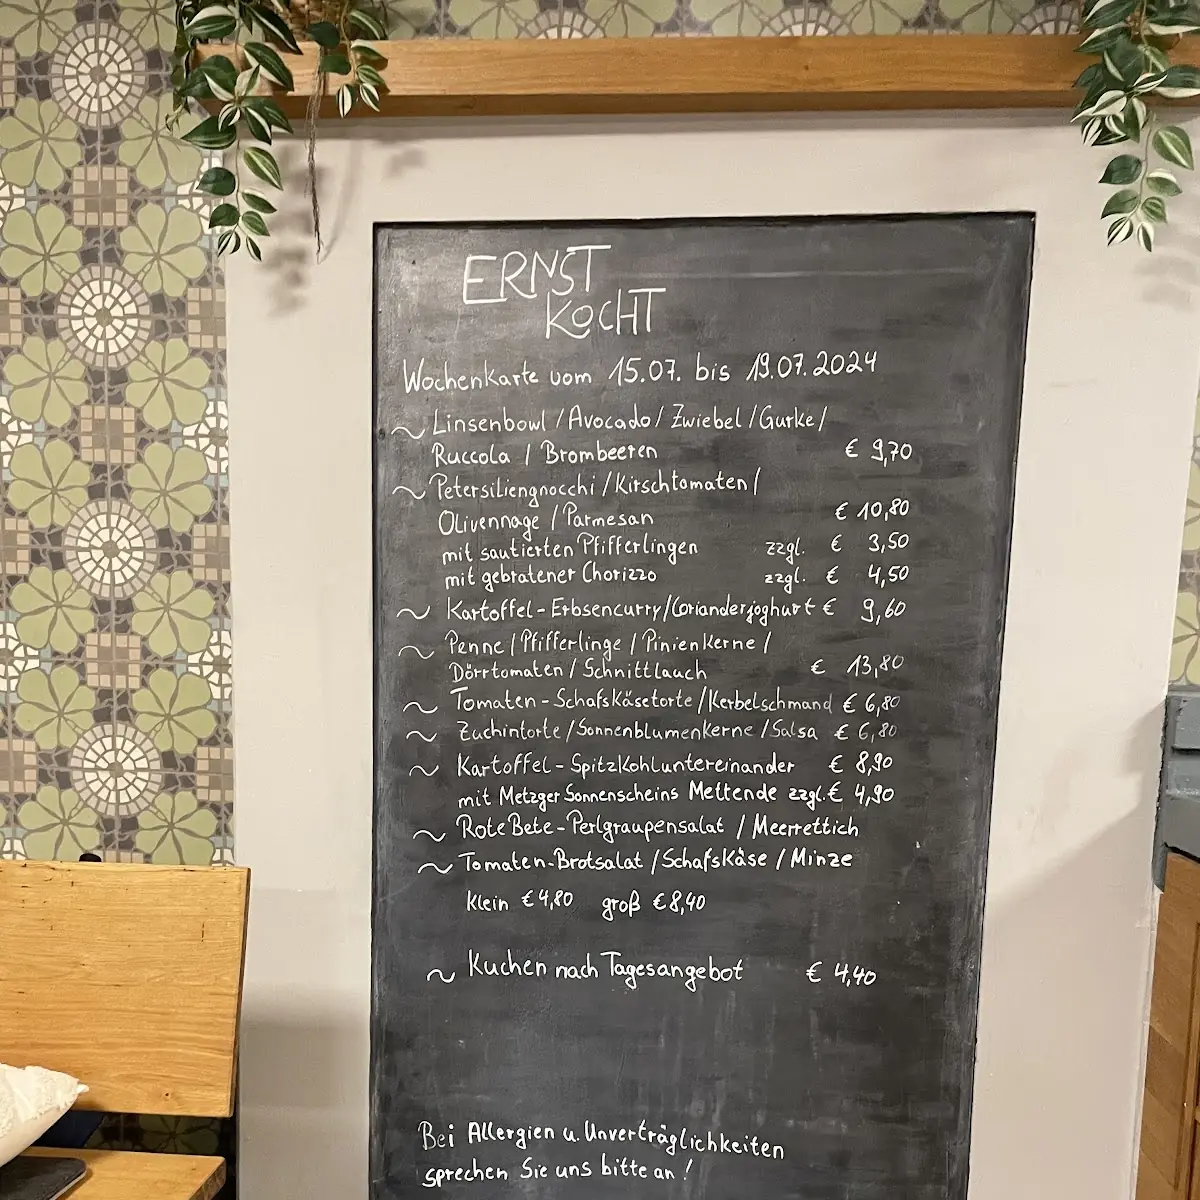 ERNST
KOCHT
Wochenkarte vom 15.07. bis 19.07.2024
~ Linsenbowl / Avocado / Zwiebel / Gurke /
Ruccola / Brombeeren € 9,70
~ Petersiliengnocchi / Kirschtomaten /
Olivennage / Parmesan € 10,80
mit sautierten Pfifferlingen zzgl. € 3,50
mit gebratener Chorizzo zzgl. € 4,50
~ Kartoffel - Erbsencurry / Corianderjoghurt € 9,60
~ Penne / Pfifferlinge / Pinienkerne /
Dörrtomaten / Schnittlauch € 13,80
~ Tomaten - Schafskäsetorte / Kerbelschmand € 6,80
~ Zuchintorte / Sonnenblumenkerne / Salsa € 6,80
~ Kartoffel - Spitzkohluntereinander € 8,90
mit Metzger Sonnenscheins Mettende zzgl. € 4,90
~ Rote Bete - Perlgraupensalat / Meerrettich
~ Tomaten-Brotsalat / Schafskäse / Minze
klein € 4,80 groß € 8,40
~ Kuchen nach Tagesangebot € 4,40
Bei Allergien u. Unverträglichkeiten
sprechen Sie uns bitte an !